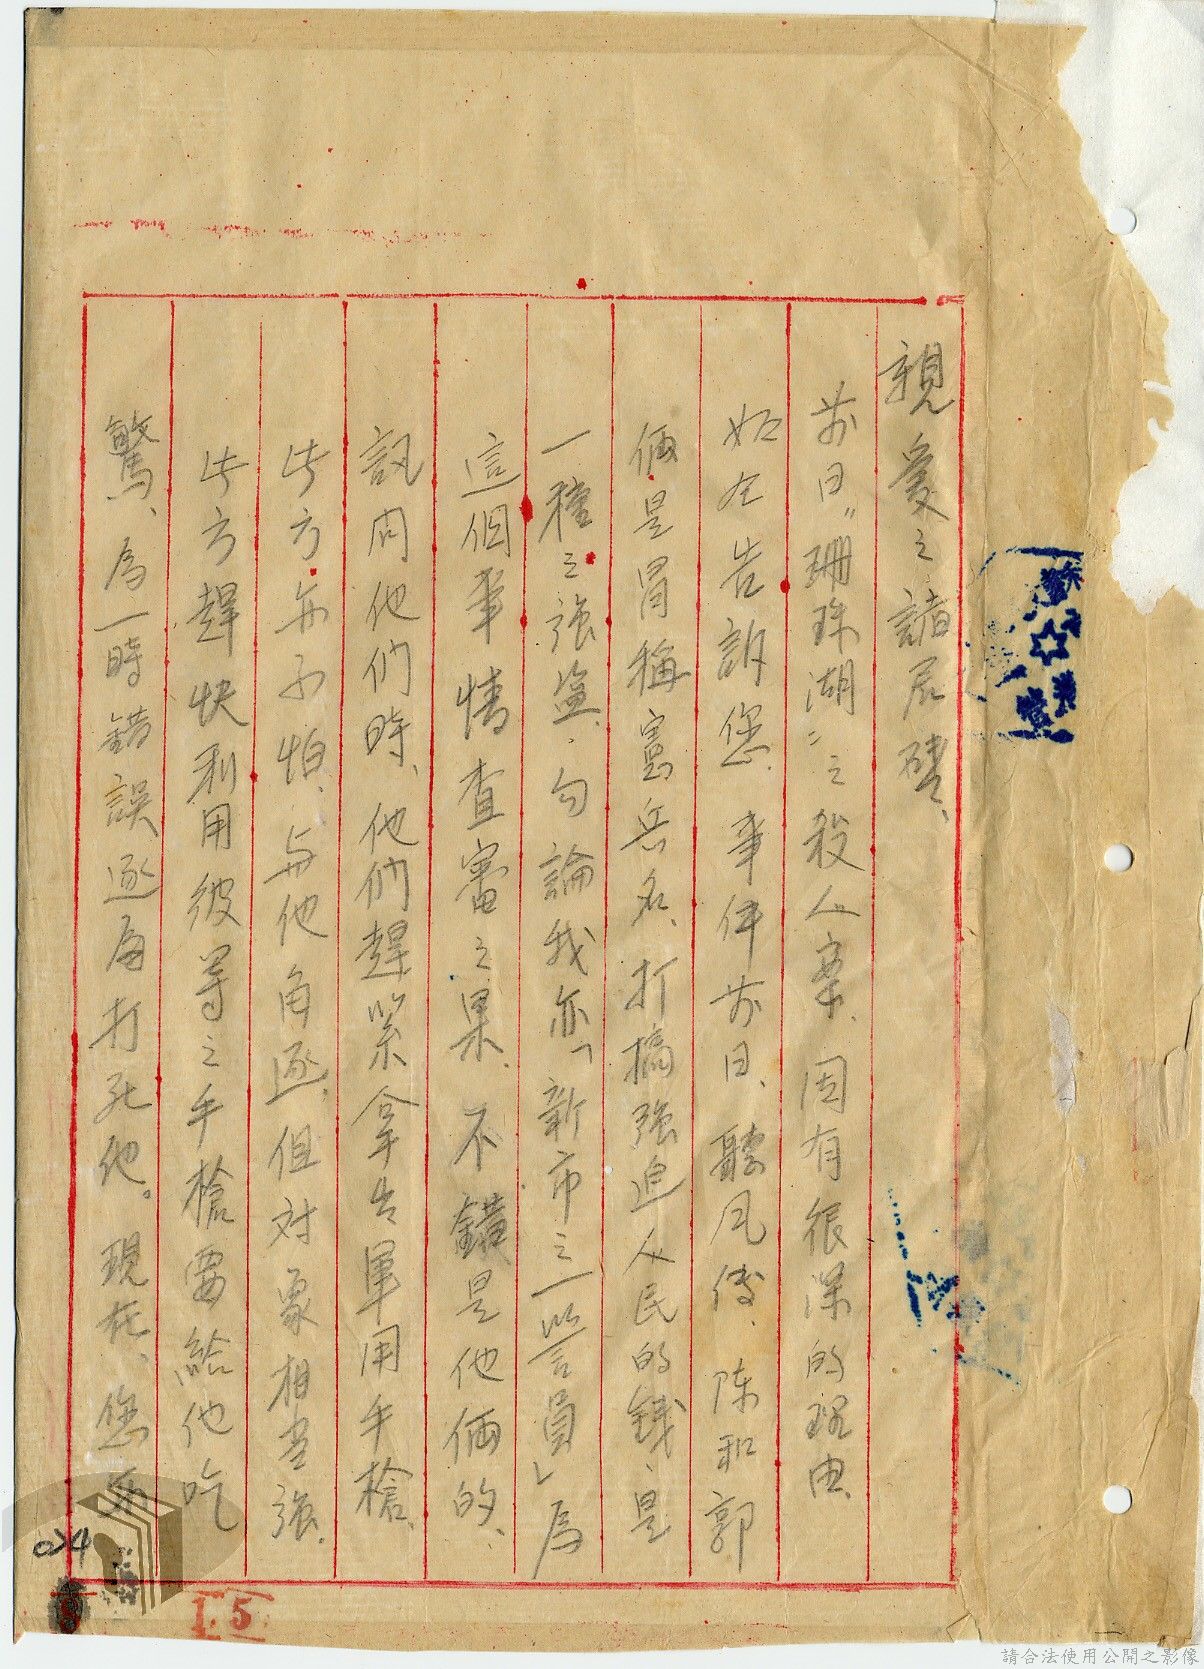 親愛之諸君礎、
前日〝珊珠湖〞之殺人案、因有很深的理由、
如左告訴您、事件前日、聽風傳、陳和郭
倆是冒稱憲兵名、打搞強迫人民的錢、是
一種之強盜、勿論我亦「新市之一警員」為
這個事情查審之果、不錯是他倆的、
訊問他們時、他們趕緊拿出軍用手槍、
此方亦不怕、与他角逐、但對象相當強、
此方趕快利用彼等之手槍要給他吃
驚、為一時錯誤逐為打死他。現在、您
024
1.5
請合法使用公開之影像